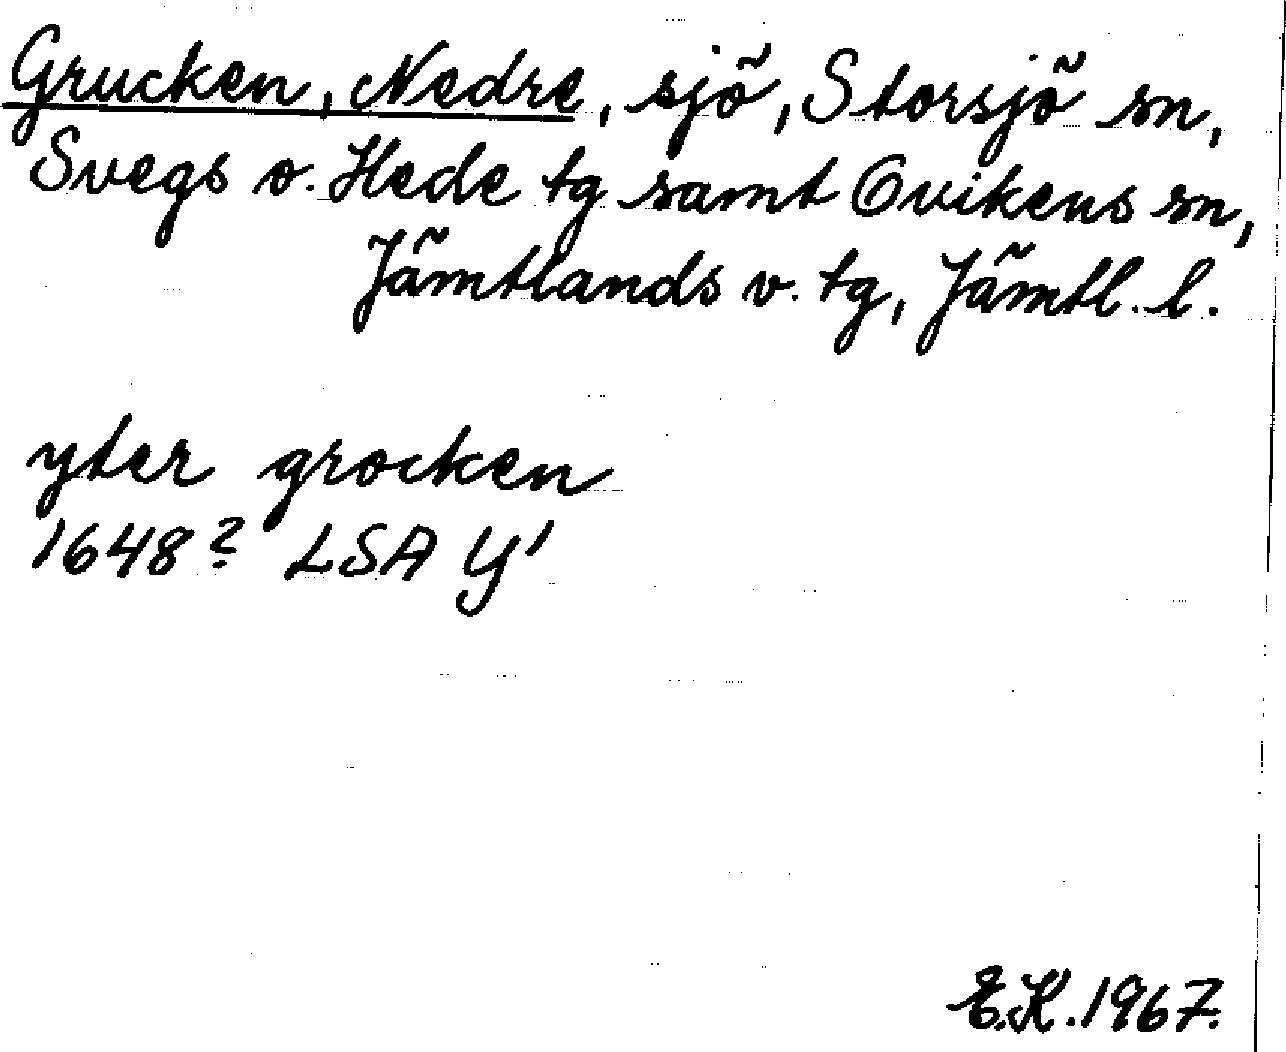 Grucken, Nedre, sjö, Storsjö sn,
Svegs o. Hede tg samt Ovikens sn,
Jämtlands v. tg, Jämtl. l.
yter grocken
1648? LSA Y'
E.K. 1967.